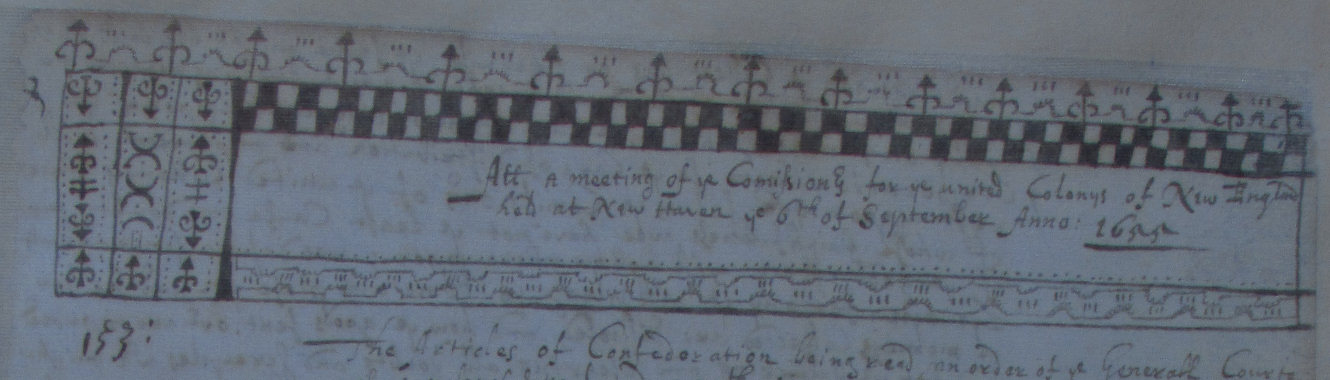 Att a meeting of ye Comissionrs for ye united Colonys of New England
held at New Haven ye 6th of September Anno: 1655
153:
The Articles of Confederation being read, an order of ye Generall Courte